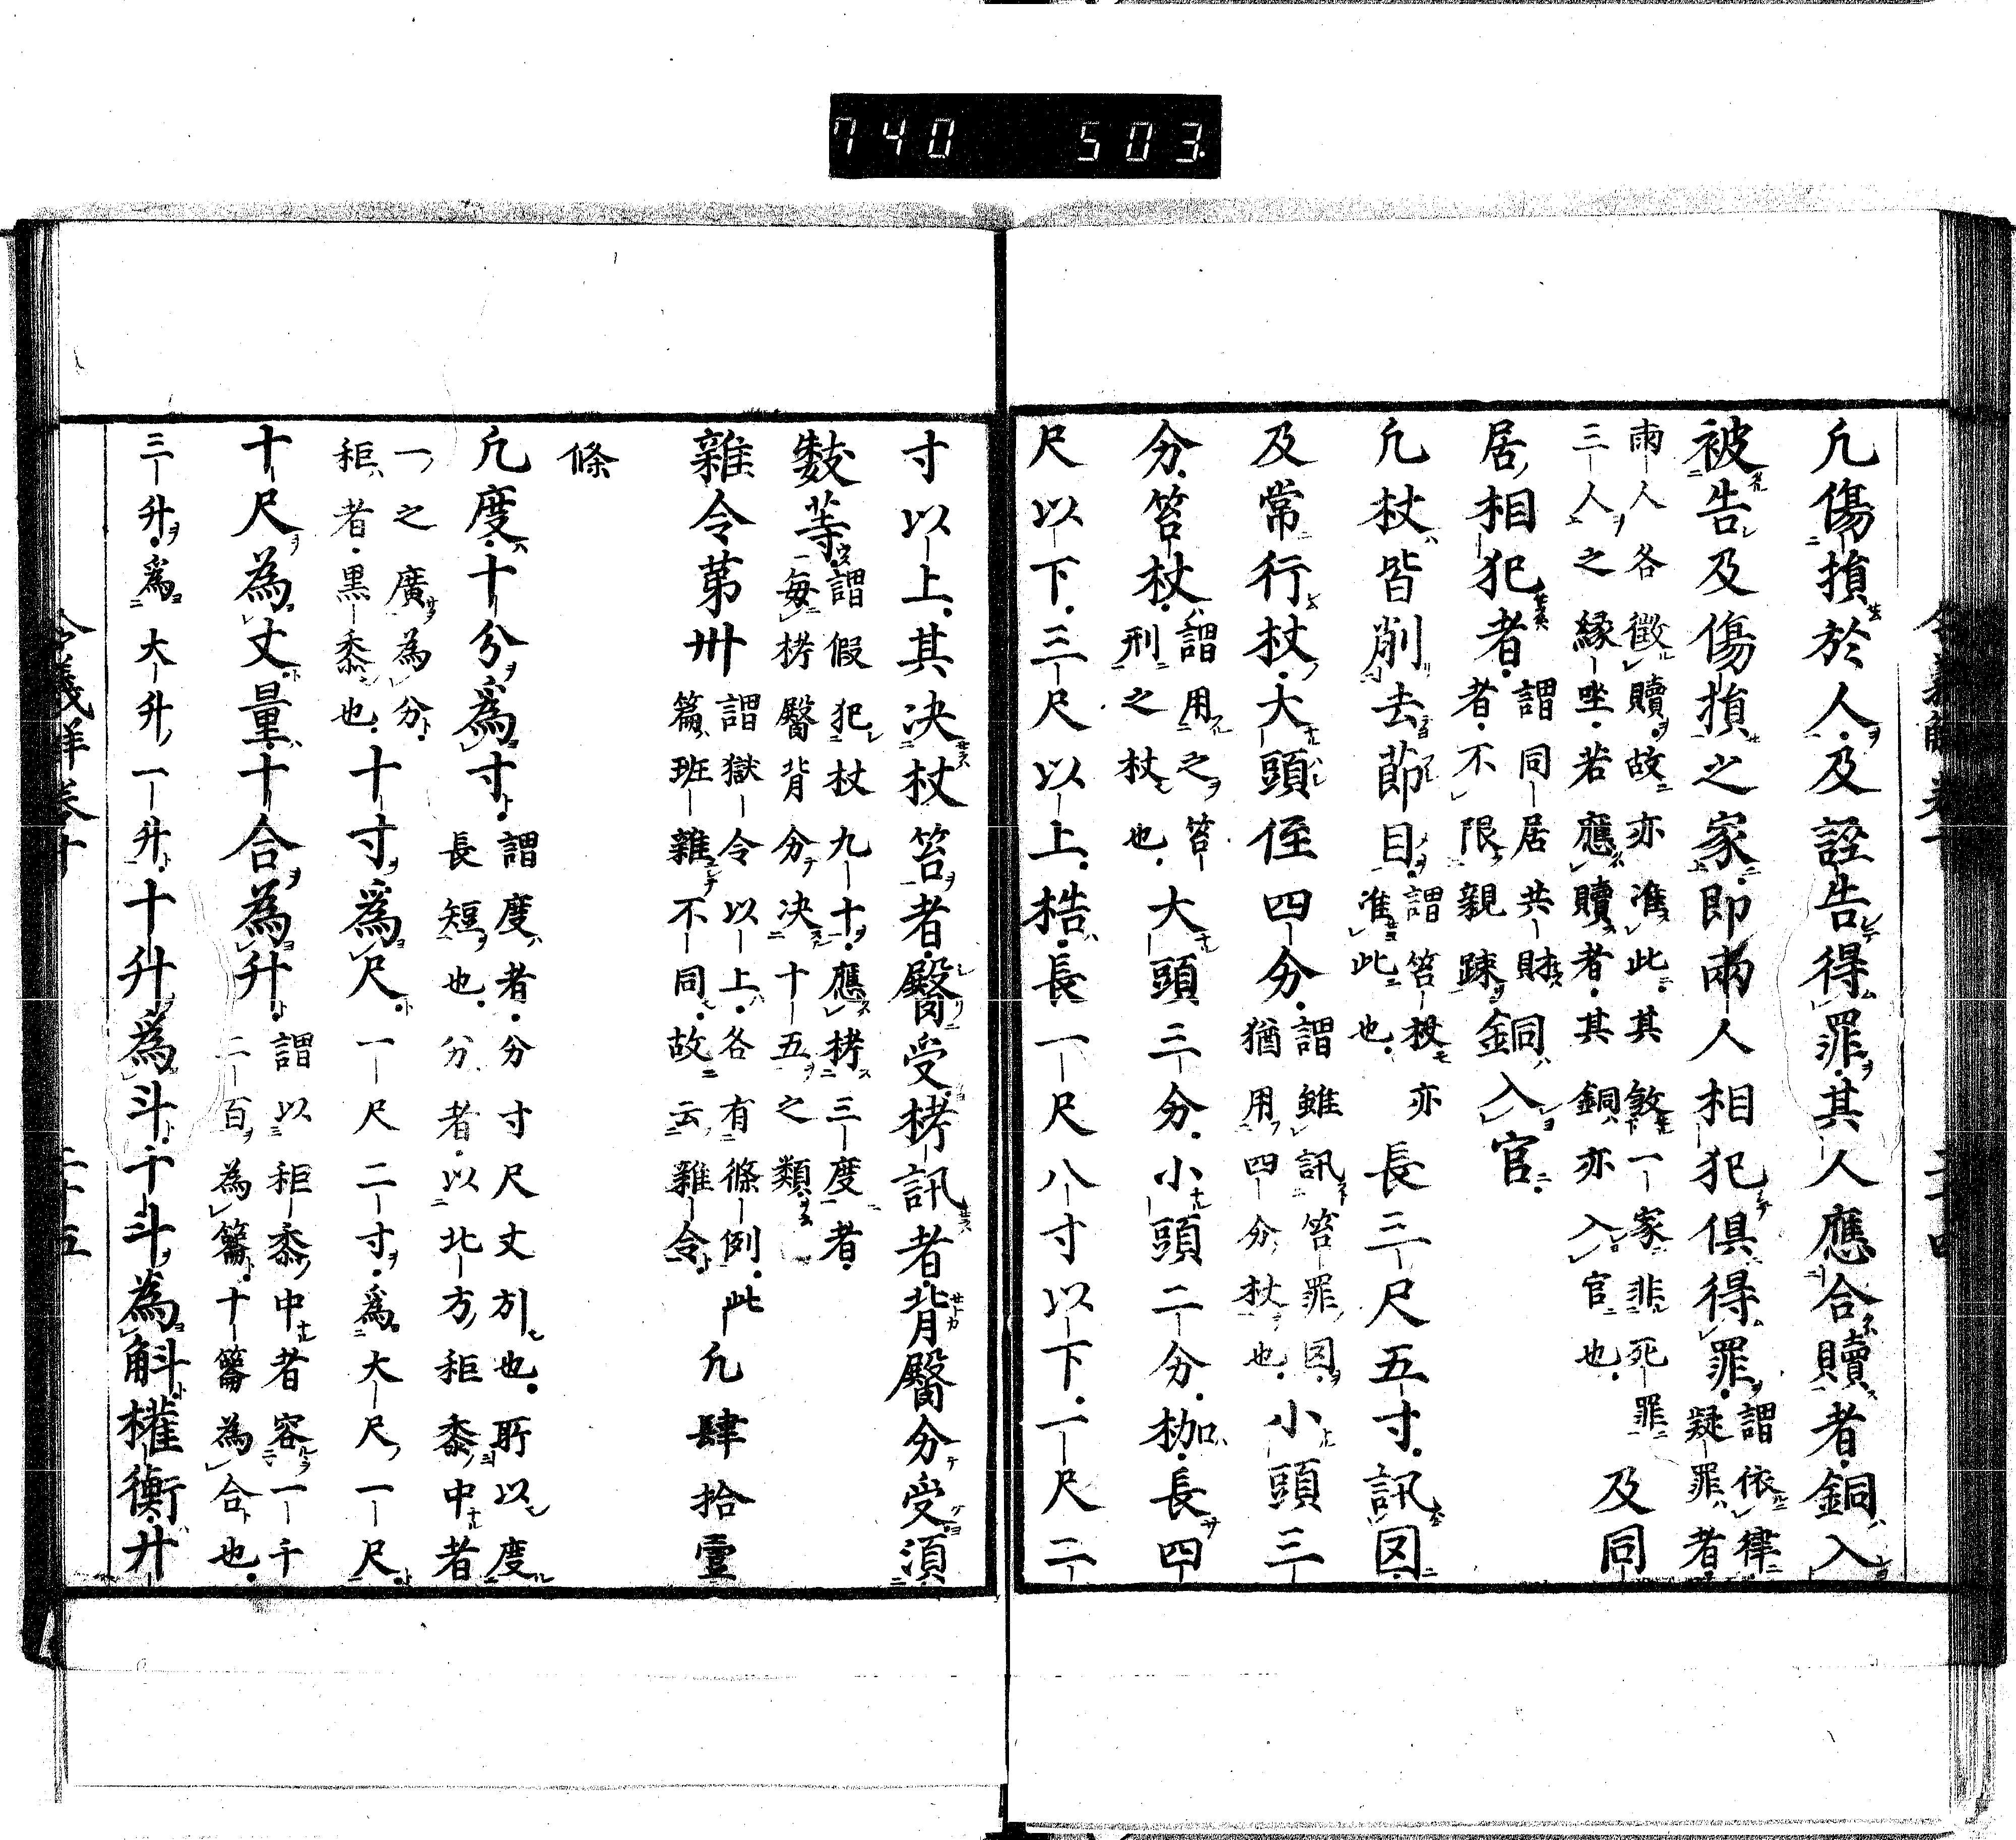 740 503
凢傷損於人及誣告得罪其人應合贖者銅入
被告及傷損之家即兩人相犯俱得罪謂依律疑罪者
兩人各徵贖故亦准此其敘一家非死罪
三人之縁坐若應贖者其銅亦入官也及同
居相犯者謂同居共財者不限親踈銅入官
凢杖皆削去莭目謂笞杖亦准此也長三尺五寸訊囚
及常行杖大頭侄四分謂雖訊笞罪囚猶用四分杖也小頭三
分笞杖謂用之笞刑之杖也大頭三分小頭二分枷長四
尺以下三尺以上梏長一尺八寸以下一尺二
寸以上其決杖笞者臀受栲訊者背臀分受須
數等謂假犯杖九十應栲三度者毎栲臀背分決十五之類
雜令苐卅謂獄令以上各有條例此篇班雜不同故云雜令凢肆拾壹
條
凢度十分爲寸謂度者分寸尺丈引也所以度長短也分者以北方秬黍中者
一之廣為分秬者黒黍也十寸爲尺一尺二寸爲大尺一尺
十尺為丈量十合為升謂以秬黍中者容一千二百為籥十籥為合也
三升爲大升一升十升爲斗十斗為斛權衡廿